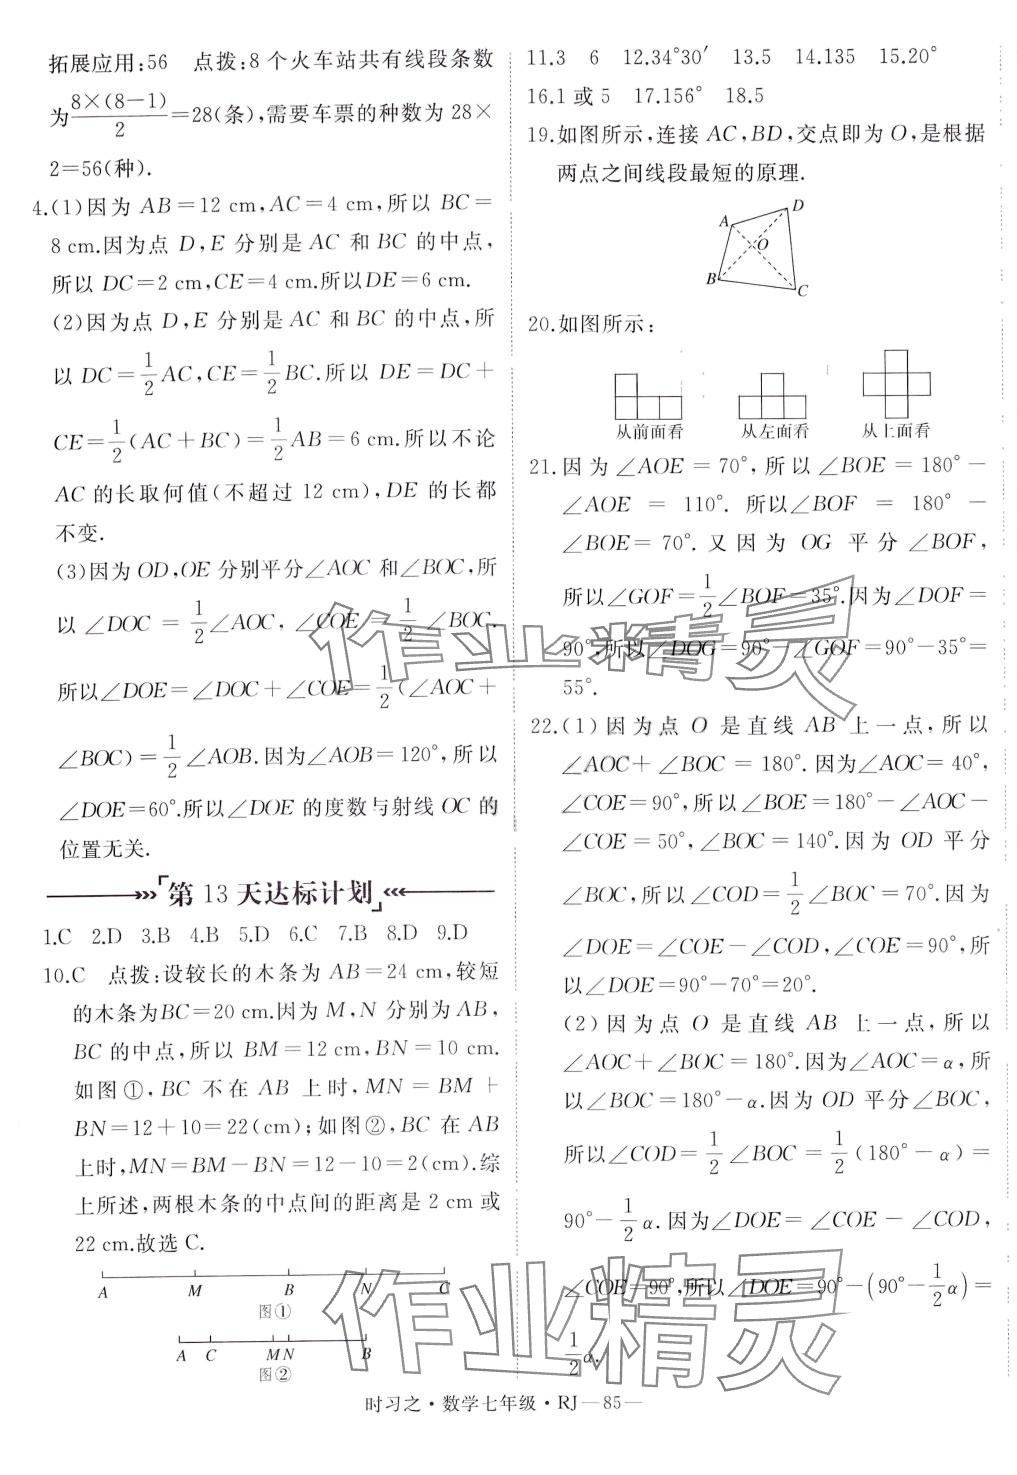 拓展应用:56　点拨:8 个火车站共有线段条数
为8×(8-1)/2=28(条),需要车票的种数为 28×
2=56(种).
4.(1)因为 AB=12 cm,AC=4 cm,所以 BC=
8 cm.因为点 D,E 分别是 AC 和 BC 的中点,
所以 DC=2 cm,CE=4 cm.所以DE=6 cm.
(2)因为点 D,E 分别是 AC 和 BC 的中点,所
以 DC=1/2AC,CE=1/2BC.所以 DE=DC+
CE=1/2(AC+BC)=1/2AB=6 cm.所以不论
AC 的长取何值(不超过 12 cm),DE 的长都
不变.
(3)因为 OD,OE 分别平分∠AOC 和∠BOC,所
以 ∠DOC = 1/2∠AOC, ∠COE = 1/2∠BOC.
所以∠DOE=∠DOC+∠COE=1/2(∠AOC+
∠BOC)=1/2∠AOB.因为∠AOB=120°,所以
∠DOE=60°.所以∠DOE 的度数与射线 OC 的
位置无关.
「第 13 天达标计划」
1.C　2.D　3.B　4.B　5.D　6.C　7.B　8.D　9.D
10.C　点拨:设较长的木条为 AB=24 cm,较短
的木条为BC=20 cm.因为 M,N 分别为 AB,
BC 的中点,所以 BM=12 cm,BN=10 cm.
如图①,BC 不在 AB 上时,MN=BM+
BN=12+10=22(cm);如图②,BC 在 AB
上时,MN=BM-BN=12-10=2(cm).综
上所述,两根木条的中点间的距离是 2 cm或
22 cm.故选 C.
A M B N C
图①
A C M N B
图②
11.3　6　12.34°30′　13.5　14.135　15.20°
16.1 或 5　17.156°　18.5
19.如图所示,连接 AC,BD,交点即为 O,是根据
两点之间线段最短的原理.
D
A
O
B
C
20.如图所示:
从前面看　从左面看　从上面看
21.因为∠AOE=70°,所以∠BOE=180°-
∠AOE = 110°. 所以∠BOF = 180° -
∠BOE=70°.又因为 OG 平分∠BOF,
所以∠GOF=1/2∠BOF=35°.因为∠DOF=
90°,所以∠DOG=90°-∠GOF=90°-35°=
55°.
22.(1)因为点 O 是直线 AB 上一点,所以
∠AOC+∠BOC=180°.因为∠AOC=40°,
∠COE=90°,所以∠BOE=180°-∠AOC-
∠COE=50°,∠BOC=140°.因为 OD 平分
∠BOC,所以∠COD=1/2∠BOC=70°.因为
∠DOE=∠COE-∠COD,∠COE=90°,所
以∠DOE=90°-70°=20°.
(2)因为点 O 是直线 AB 上一点,所以
∠AOC+∠BOC=180°.因为∠AOC=α,所
以∠BOC=180°-α.因为 OD 平分∠BOC,
所以∠COD=1/2∠BOC=1/2(180°-α)=
90°-1/2α.因为∠DOE=∠COE-∠COD,
∠COE=90°,所以∠DOE=90°-(90°-1/2α)=
1/2α.
作业精灵
作业精灵
时习之·数学七年级·RJ—85—